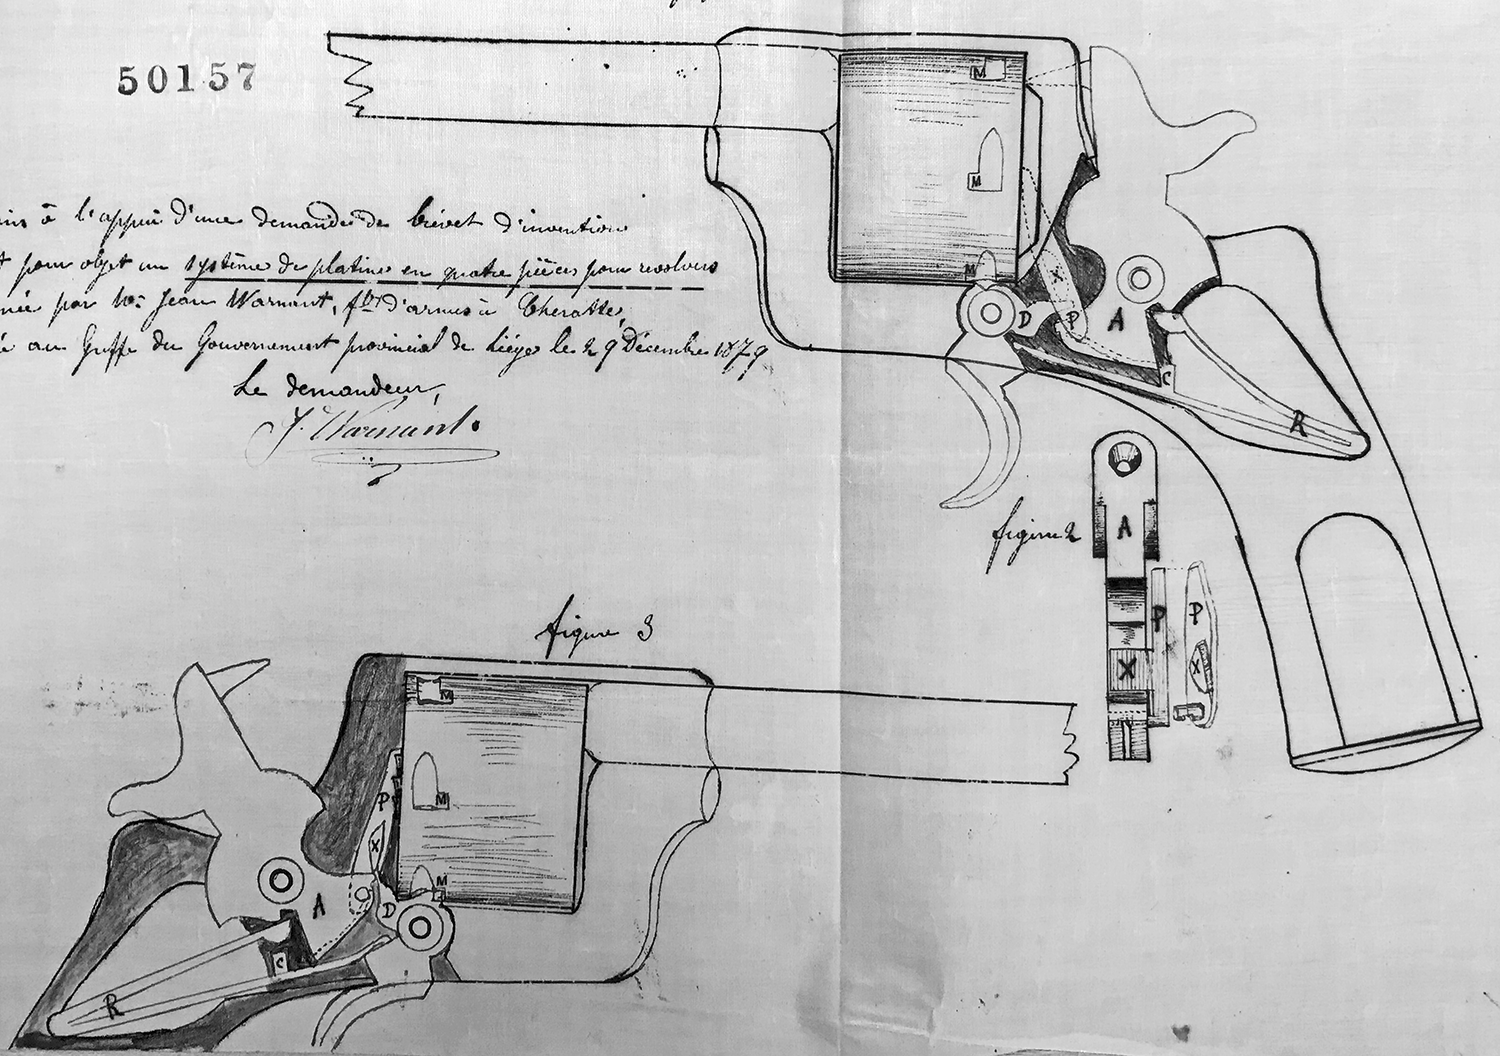 50157
à l'appui d'une demande de brevet d'invention
pour objet un système de platine en quatre pièces pour revolvers
par Mr Jean Warnant, fbt d'armes à Cheratte,
au Greffe du Gouvernement provincial de Liége le 29 Décembre 1879
Le demandeur,
J. Warnant.
M
M
M
X
D
P
A
C
R
figure 2
A
P
P
X
X
figure 3
M
P
M
X
M
A
D
C
R